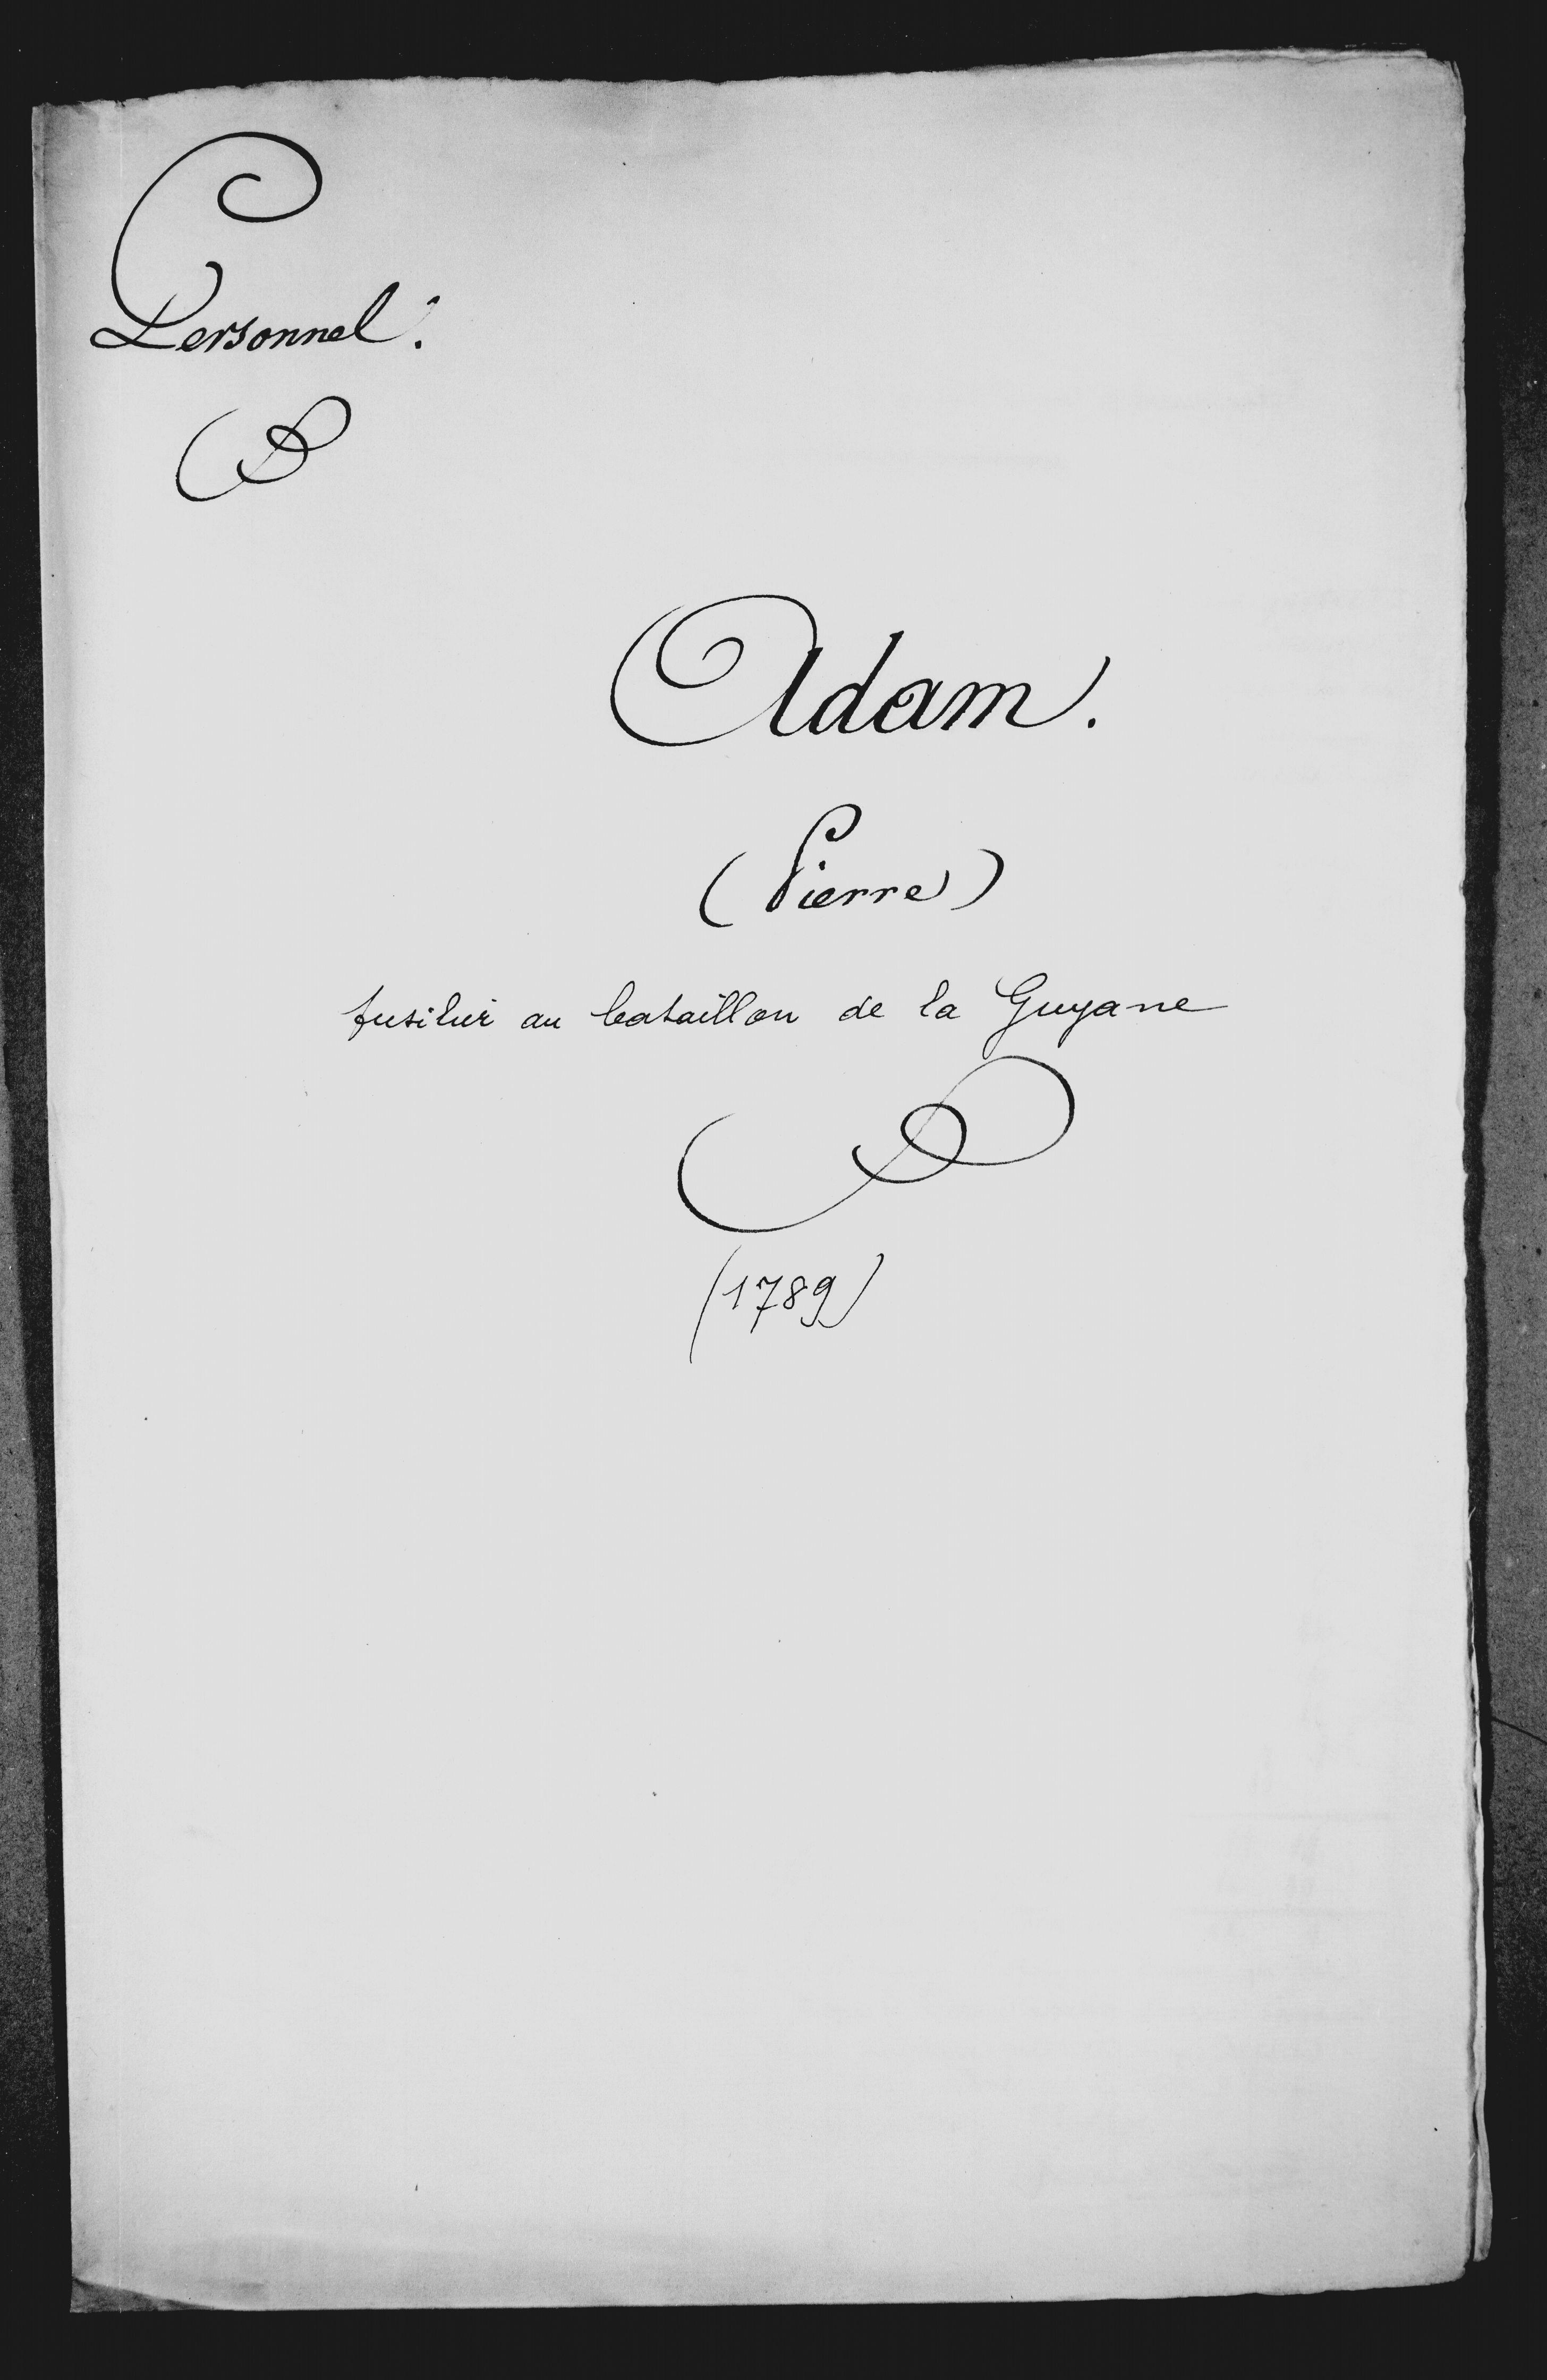 Personnel.
Adam.
(Pierre)
fusilier au bataillon de la Guyane
(1789)